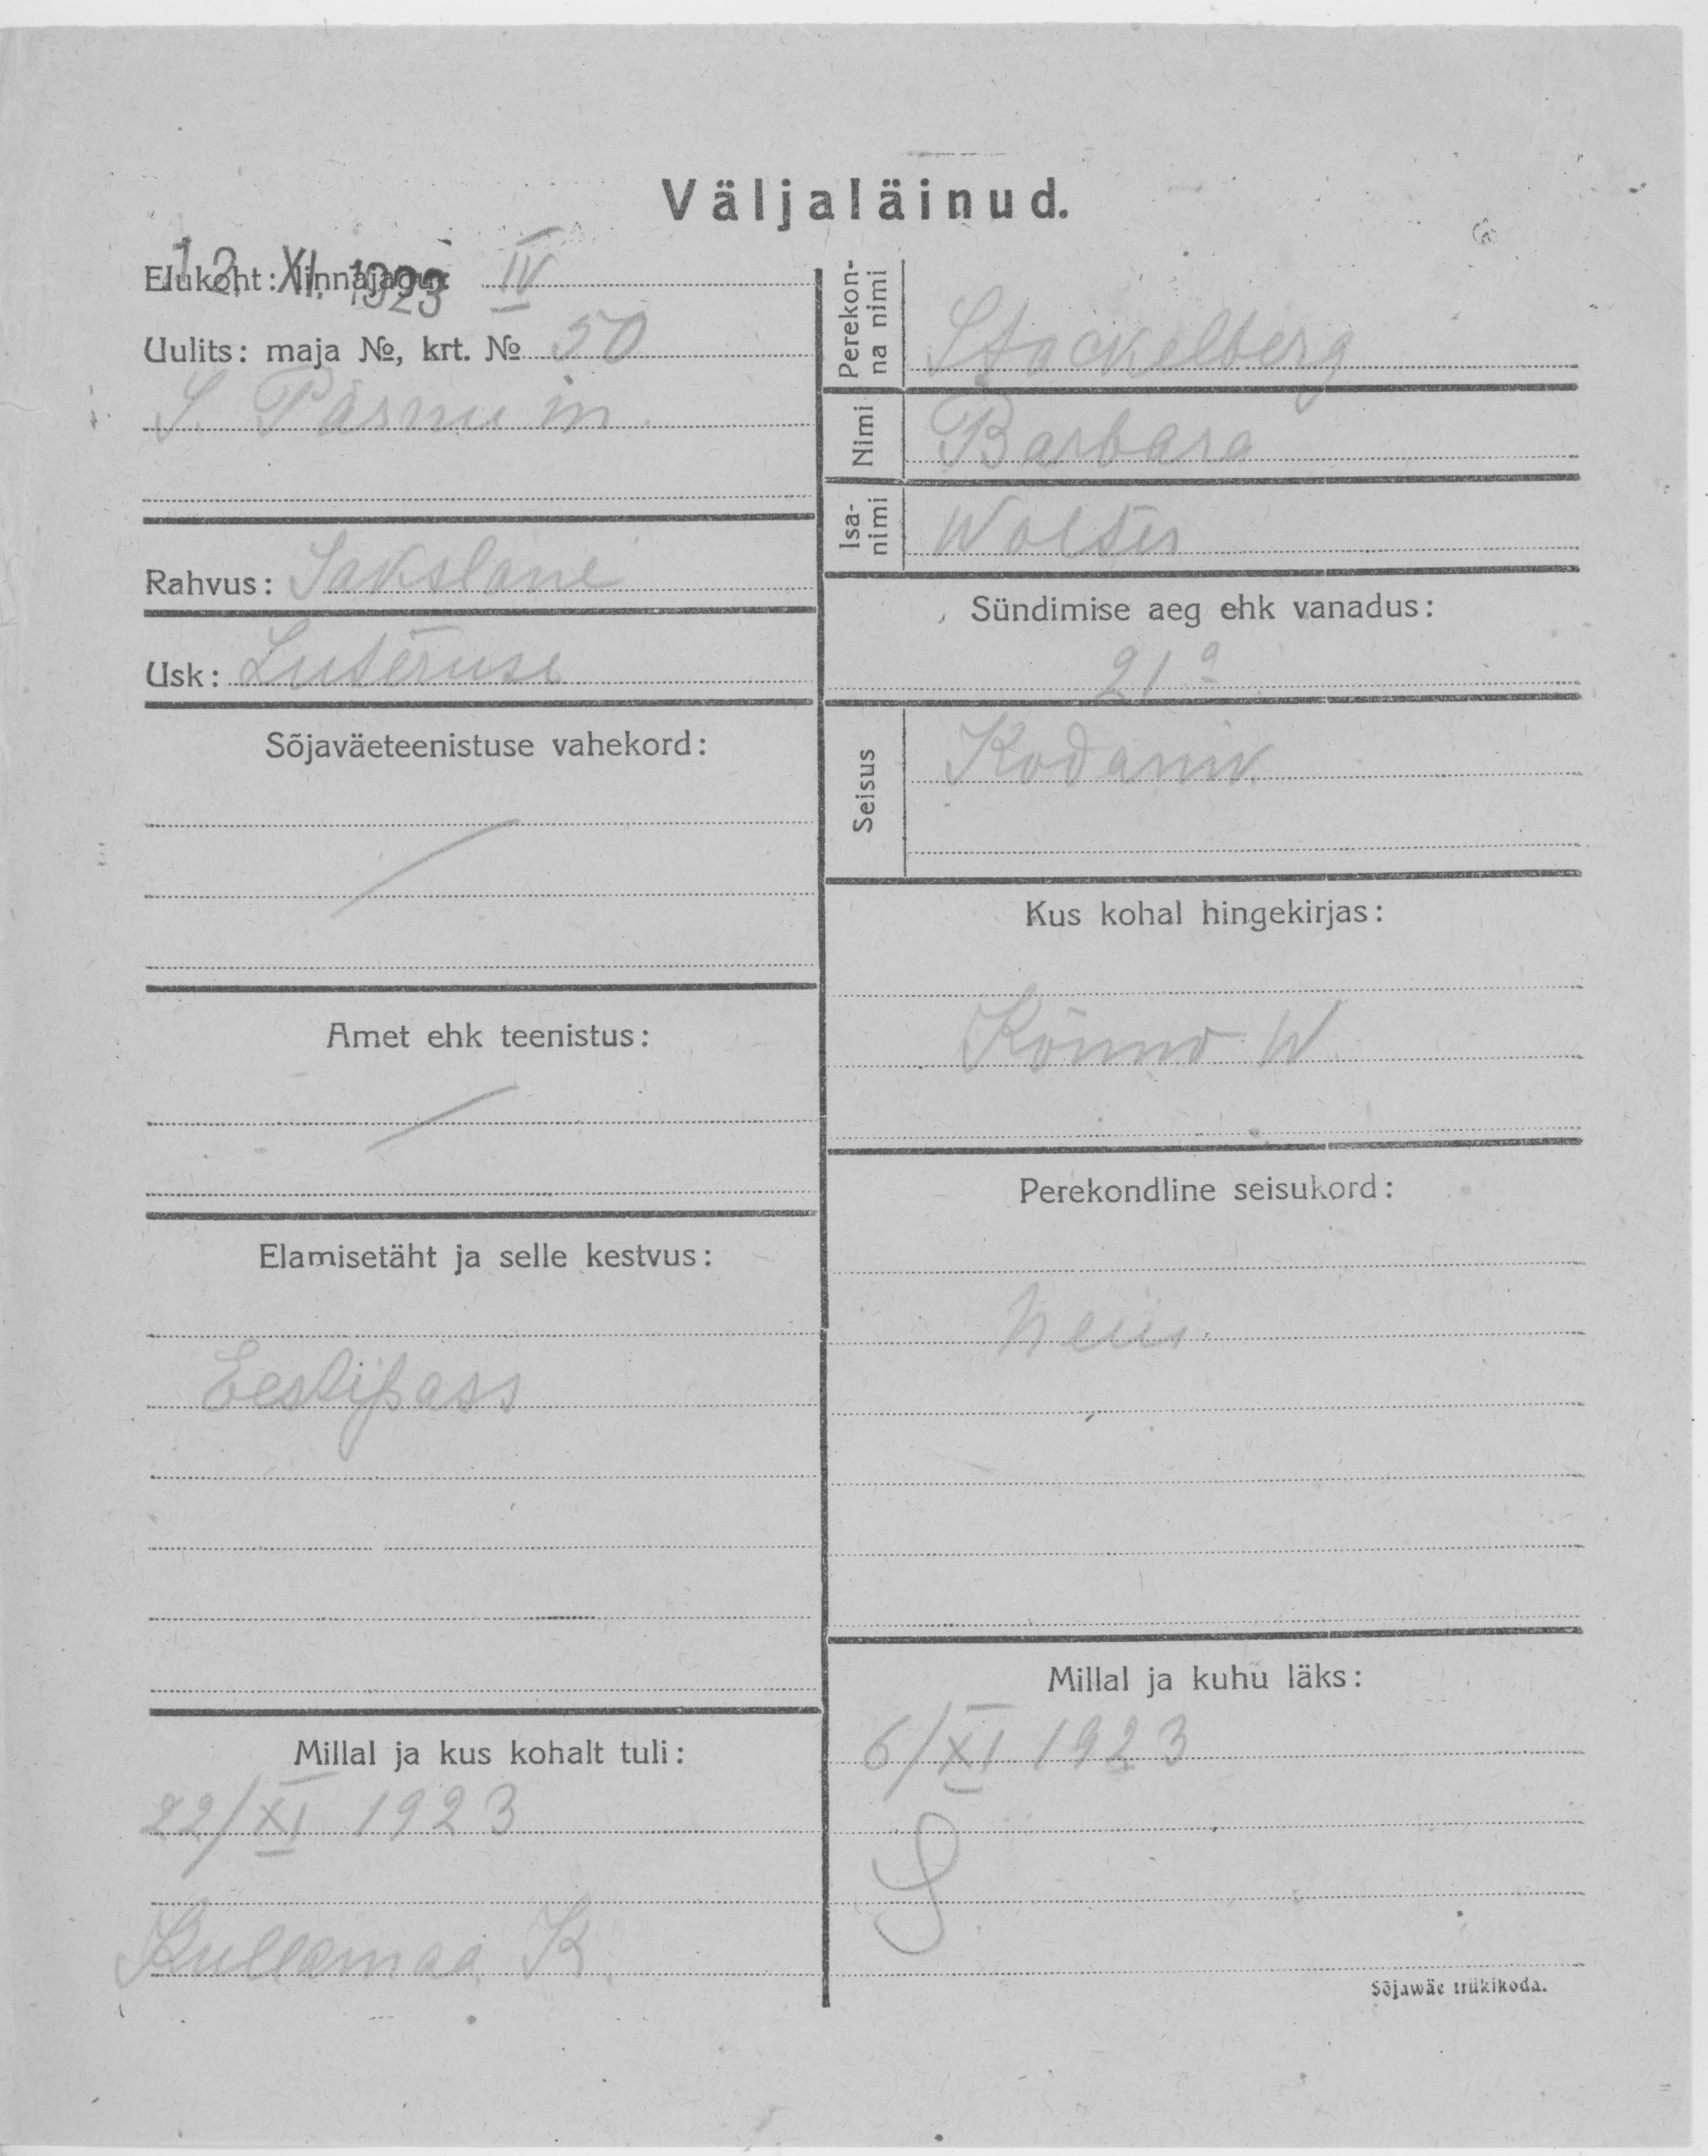 Väljaläinud.
12. XI. 1923
Elukoht: linnajagu: IV
Uulits: maja №, krt. № 50
S. Pärnu m.
Rahvus: Sakslane
Usk: Luteruse
Sõjaväeteenistuse vahekord:
Amet ehk teenistus:
Elamisetäht ja selle kestvus:
Eestipass
Millal ja kus kohalt tuli:
22/XI 1923
Kullamaa K.
Perekon-
na nimi
Stackelberg
Nimi
Barbara
Isa-
nimi
Wolter
Sündimise aeg ehk vanadus:
21 a
Seisus
Kodanik
Kus kohal hingekirjas:
Kõnno W
Perekondline seisukord:
neiu.
Millal ja kuhu läks:
6/XI 1923
Sõjawäe trükikoda.